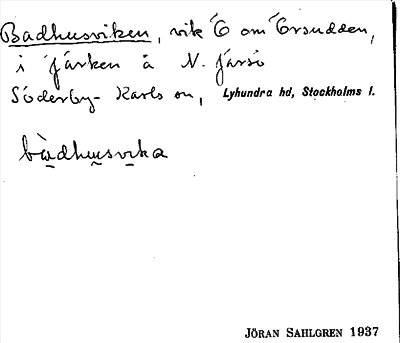 Badhusviken, vik Ö om Örsudden,
i fjärden å N. Järsö
Söderby-Karls sn, Lyhundra hd, Stockholms l.
bàdhusvika
JÖRAN SAHLGREN 1937